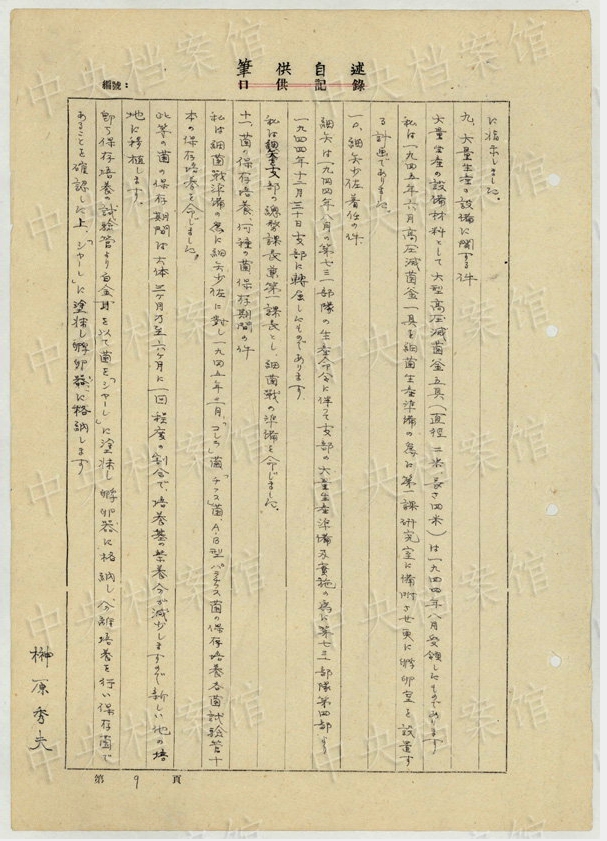 筆供自述
口供記錄
編號：
に指示しました。
九、大量生産の設備に関する件
大量生産の設備材料として大型高圧滅菌釜五具（直径二米、長さ四米）は一九四四年八月受領したものであります
私は一九四五年六月高圧滅菌釜一具を細菌生産準備の為に第一課研究室に備附させ更に孵卵室を設置す
る計画でありました。
一〇、細矢少佐着任の件
細矢は一九四四年八月の第七三一部隊の生産命令に伴って支部の大量生産準備及実施の為に第七三一部隊第四部より
一九四四年十二月三十日支部に轉属したものであります
私は細矢を支部の總務課長兼第一課長とし、細菌戰の準備を命じました。
十一、菌の保存培養、何種の菌保存期間の件
私は細菌戰準備の為に細矢少佐に対し一九四五年一月、「コレラ」菌「チフス」菌、A・B型パラチフス菌の保存培養各菌試験管十
本の保存培養を命じました。
此等の菌の保存期間は大体三ヶ月乃至六ヶ月に一回程度の割合で、培養基の栄養分が減少しますので新しい他の培
地に移植します。
即ち保存培養の試験管より白金耳を以て菌を「シャーレ」に塗抹し孵卵器に格納し、分離培養を行い保存菌で
あることを確認した上、「シャーレ」に塗抹し孵卵器に格納します
榊原秀夫
第9頁
中央档案馆